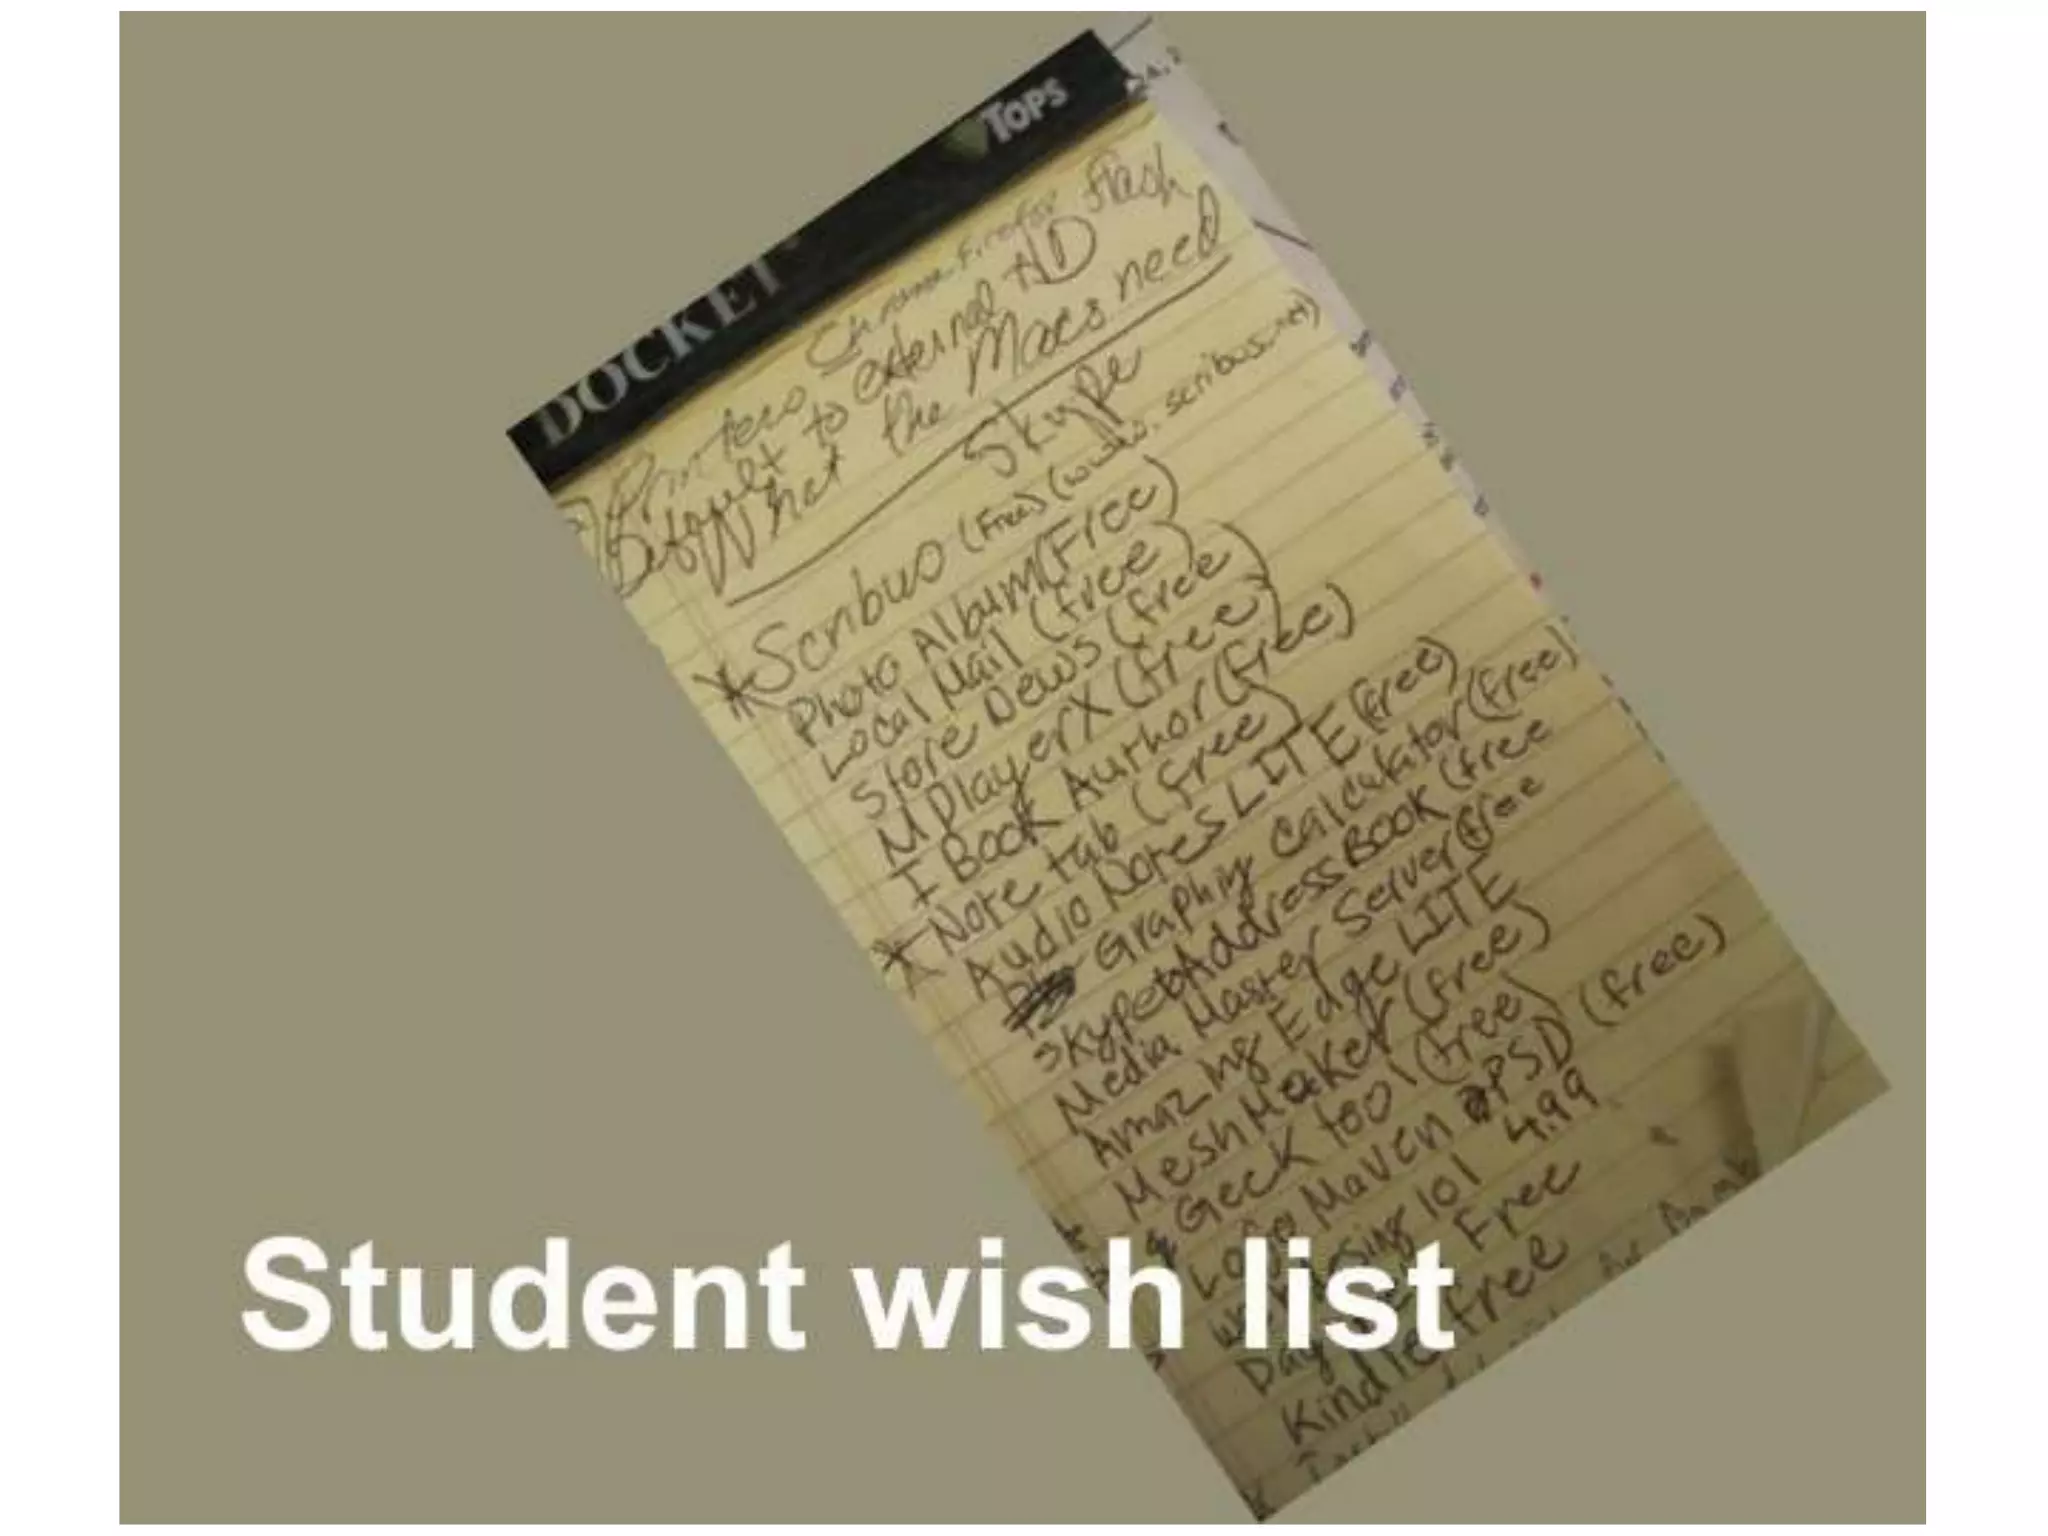 TOPS
DOCKET
Printers Chrome Firefox flash
Default to external HD
What the Macs need
Skype
*Scribus (Free) (www.scribus.net)
Photo Album (Free)
Local Mail (free)
Store News (free)
MPlayerX (free)
I Book Author (Free)
*Note tab (free)
Audio Notes LITE (free)
Graphing Calculator (free)
Skype Address Book (free
Media Master Server (free
Amazing Edge LITE
Mesh Maker (free)
Geek tool (free)
Logo Maven PSD (free)
101 4.99
Day Free
Kindle free
Student wish list